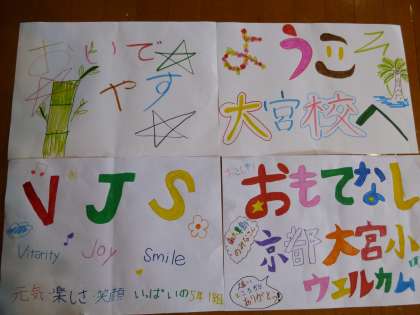 おいで
やす
ようこそ
大宮校へ
VJS
Vitarity Joy Smile
元気・楽しさ・笑顔 いっぱいの5年1組
おもてなし
京都 大宮小
ウェルカム